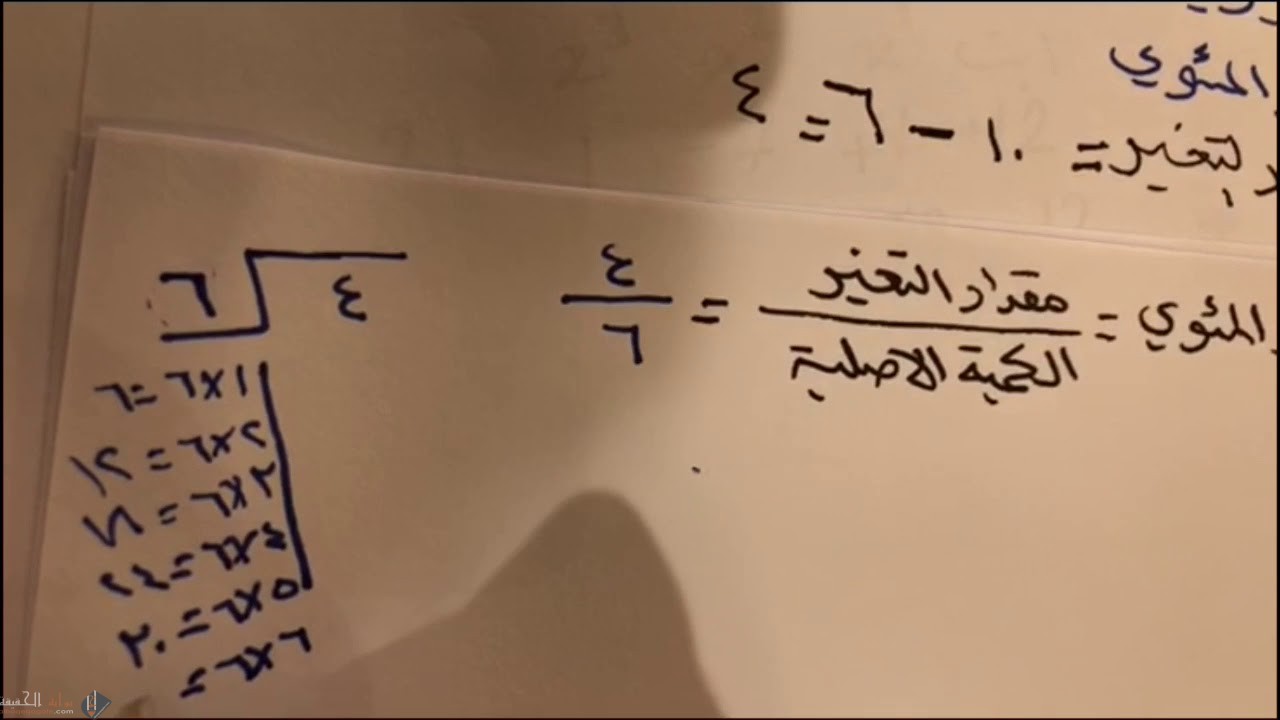 المئوي
التغير = ١٠ − ٦ = ٤
المئوي = مقدار التغير / الكمية الاصلية = ٤ / ٦
٦ ٤
١×٦ = ٦
٢×٦ = ١٢
٣×٦ = ١٨
٤×٦ = ٢٤
٥×٦ = ٣٠
٦×٦ =